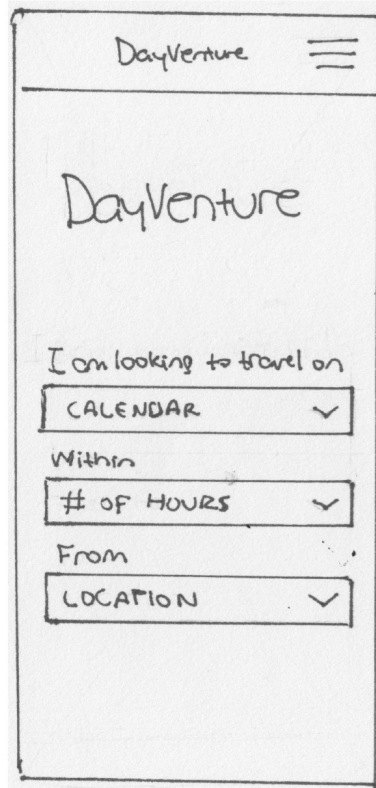 DayVenture
DayVenture
I am looking to travel on
CALENDAR
Within
# OF HOURS
From
LOCATION